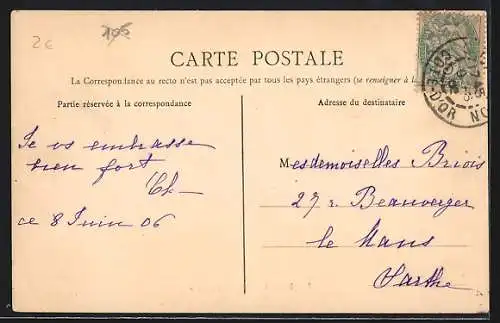 2€
CARTE POSTALE
La Correspondance au recto n'est pas acceptée par tous les pays étrangers (se renseigner à la
Partie réservée à la correspondance
Adresse du destinataire
Je vs embrasse
bien fort
Ch
ce 8 Juin 06
Mesdemoiselles Briois
27 r. Beauverger
le Mans
Sarthe
D'OR